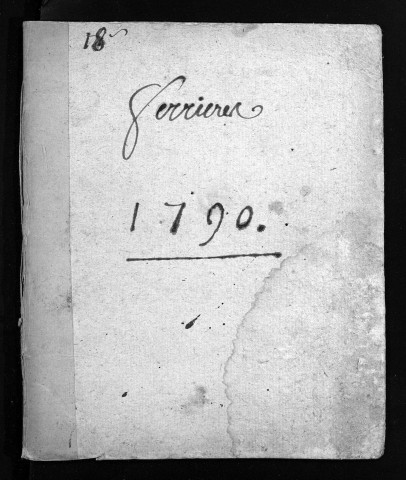 18
Ferrieres
1790.